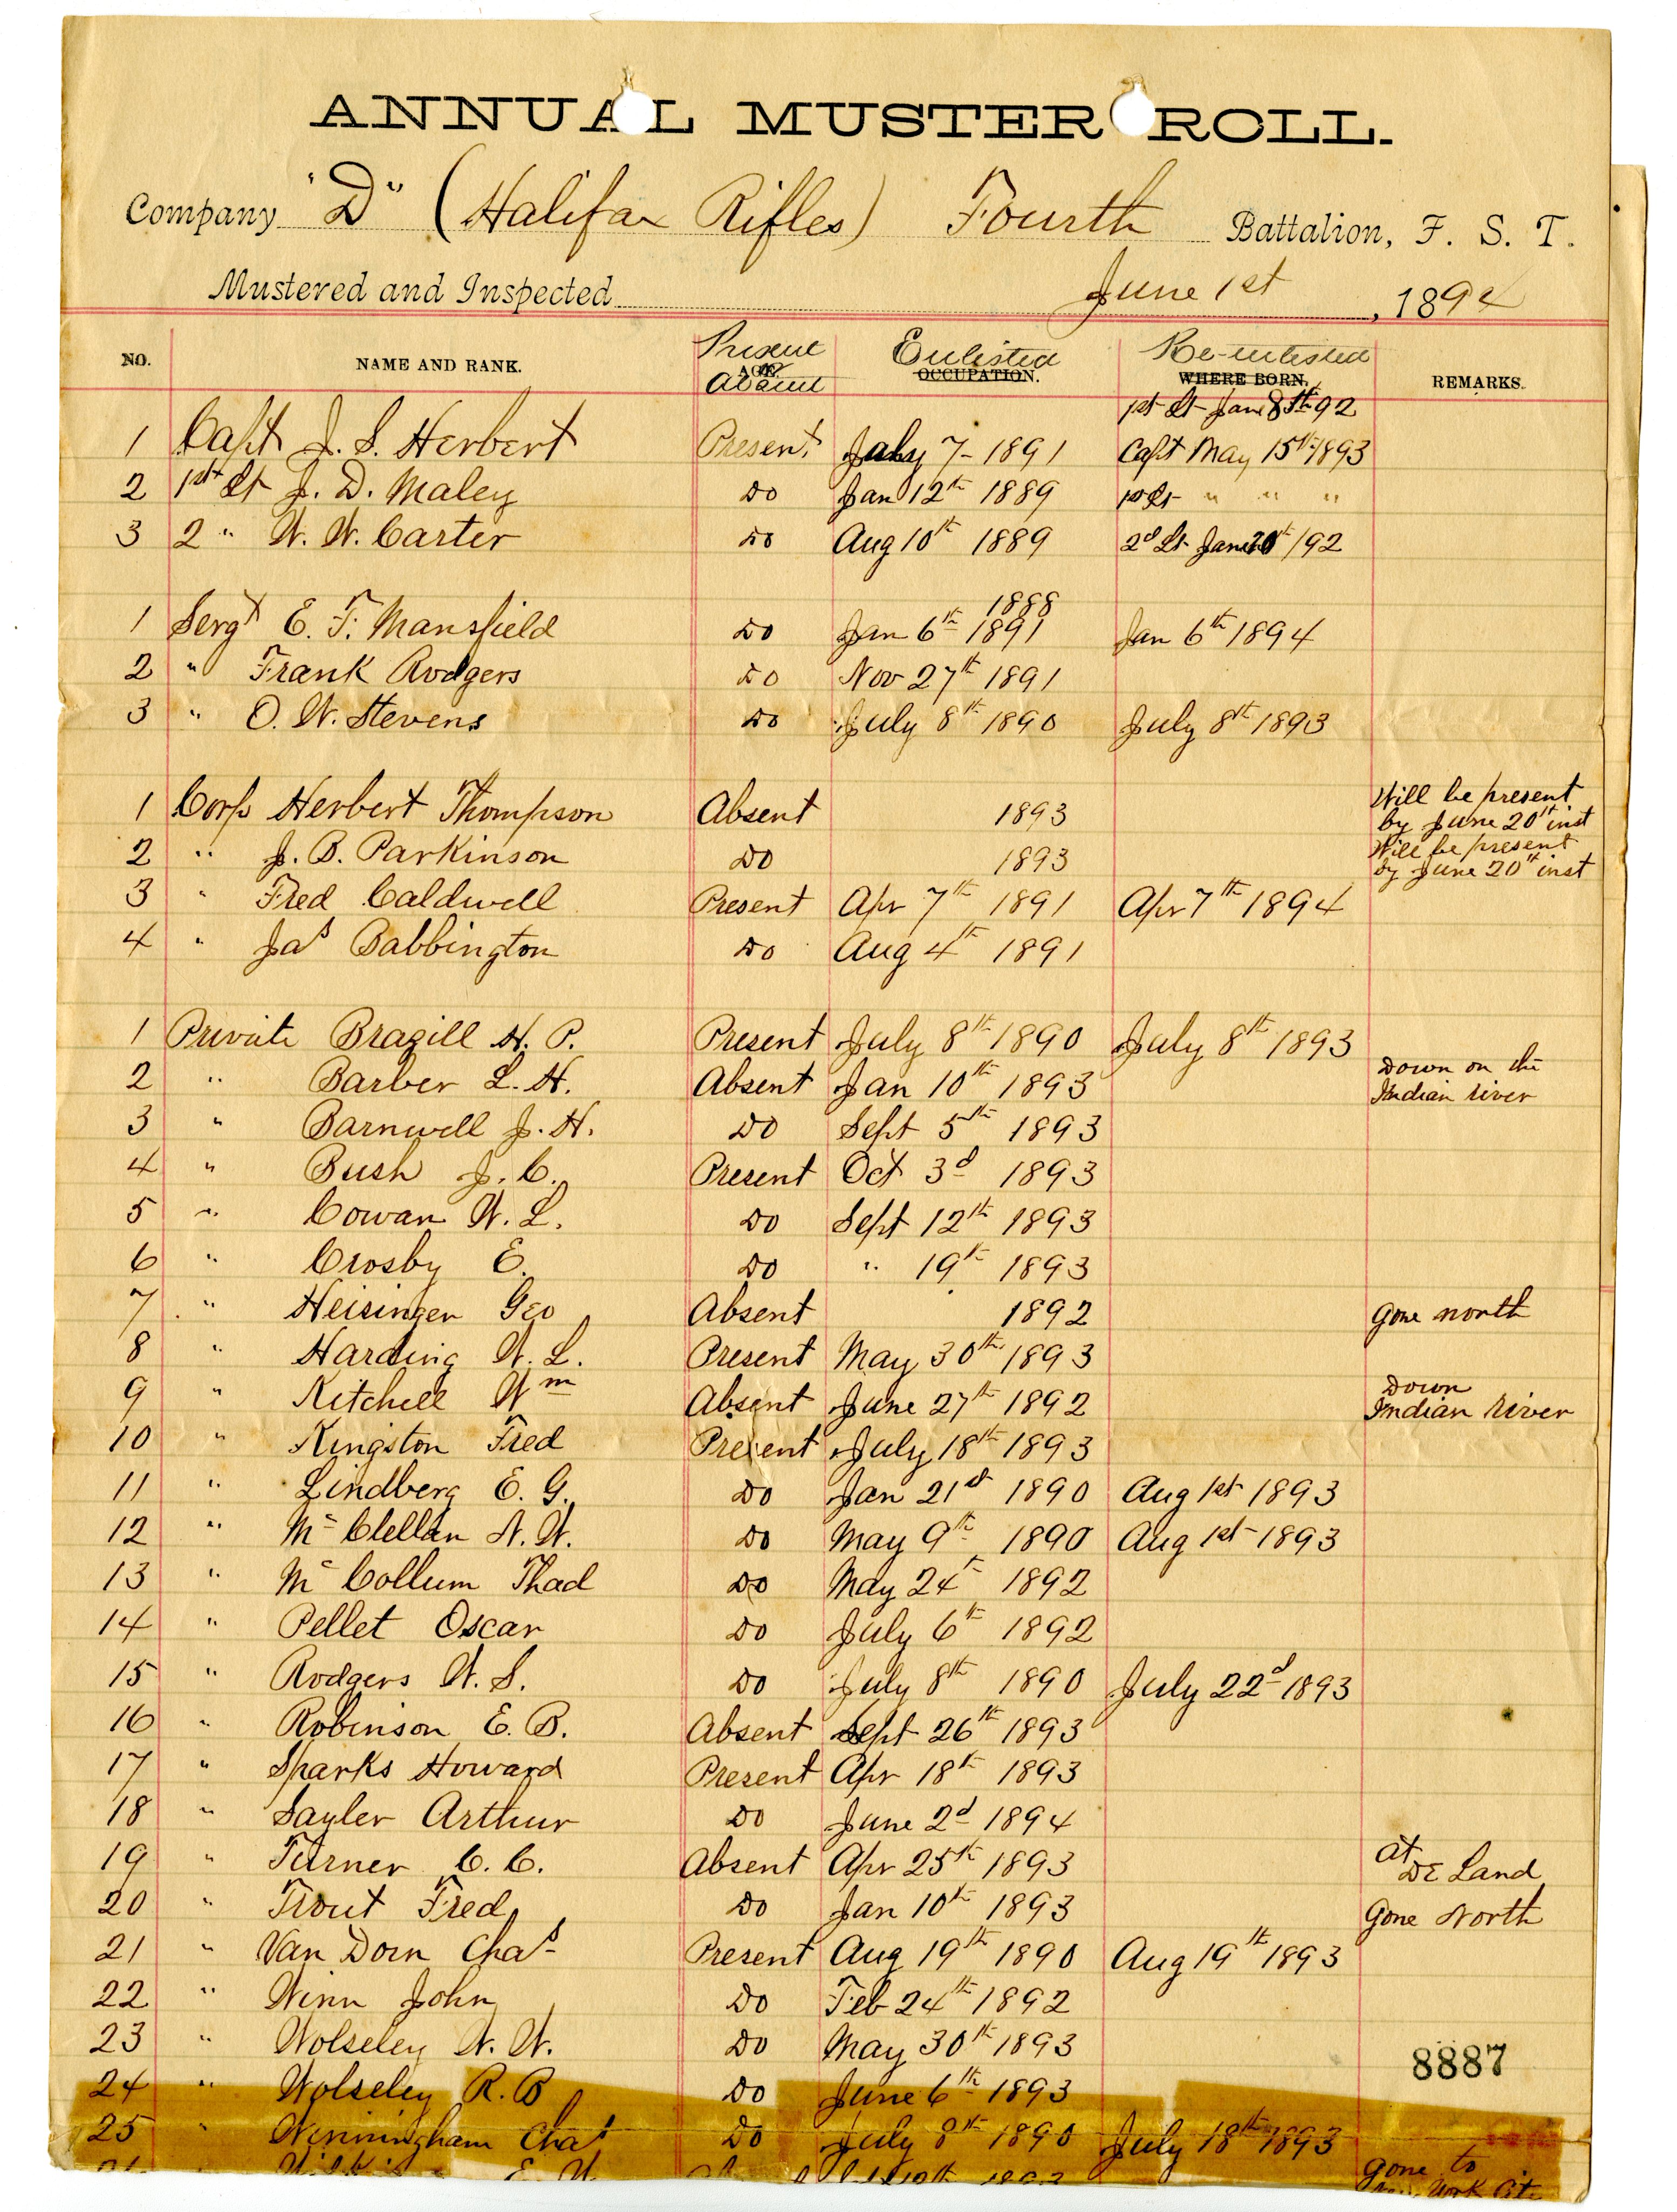 ANNUAL MUSTER ROLL.
Company "D" (Halifax Rifles) Fourth Battalion, F. S. T.
Mustered and Inspected June 1st, 1894
NO. NAME AND RANK. Present or Absent AGE. Enlisted OCCUPATION. Re-enlisted WHERE BORN. REMARKS.
1st Lt Jan 8th 92
1 Capt J. S. Herbert Present July 7 - 1891 Capt May 15th 1893
2 1st Lt J. D. Maley Do Jan 12th 1889 1st Lt " " "
3 2 " W. W. Carter Do Aug 10th 1889 2d Lt June 20th /92
1888
1 Sergt E. F. Mansfield Do Jan 6th 1891 Jan 6th 1894
2 " Frank Rodgers Do Nov 27th 1891
3 " O. W. Stevens Do July 8th 1890 July 8th 1893
1 Corp Herbert Thompson Absent 1893 Will be present by June 20th inst
2 " J. B. Parkinson Do 1893 Will be present by June 20th inst
3 " Fred Caldwell Present Apr 7th 1891 Apr 7th 1894
4 " Jas Babbington Do Aug 4th 1891
1 Private Brazill H. P. Present July 8th 1890 July 8th 1893
2 " Barber L. H. Absent Jan 10th 1893 Down on the Indian river
3 " Barnwell J. H. Do Sept 5th 1893
4 " Bush J. C. Present Oct 3d 1893
5 " Cowan W. L. Do Sept 12th 1893
6 " Crosby E. Do " 19th 1893
7 " Heisinger Geo Absent 1892 Gone north
8 " Harding W. L. Present May 30th 1893
9 " Kitchell Wm Absent June 27th 1892 Down Indian River
10 " Kingston Fred Present July 18th 1893
11 " Lindberg E. G. Do Jan 21st 1890 Aug 1st 1893
12 " Mc Clellan N. W. Do May 9th 1890 Aug 1st 1893
13 " Mc Collum Thad Do May 24th 1892
14 " Pellet Oscar Do July 6th 1892
15 " Rodgers W. S. Do July 8th 1890 July 22d 1893
16 " Robinson E. B. Absent Sept 26th 1893
17 " Sparks Howard Present Apr 18th 1893
18 " Sayler Arthur Do June 2d 1894
19 " Turner C. C. Absent Apr 25th 1893 at De Land
20 " Trout Fred Do Jan 10th 1893 Gone North
21 " Van Dorn Chas Present Aug 19th 1890 Aug 19th 1893
22 " Winn John Do Feb 24th 1892
23 " Wolseley N. W. Do May 30th 1893
8887
24 " Wolseley R. B Do June 6th 1893
25 " Winningham Chas Do July 8th 1890 July 18th 1893
E. W. 1893 Gone to
York City